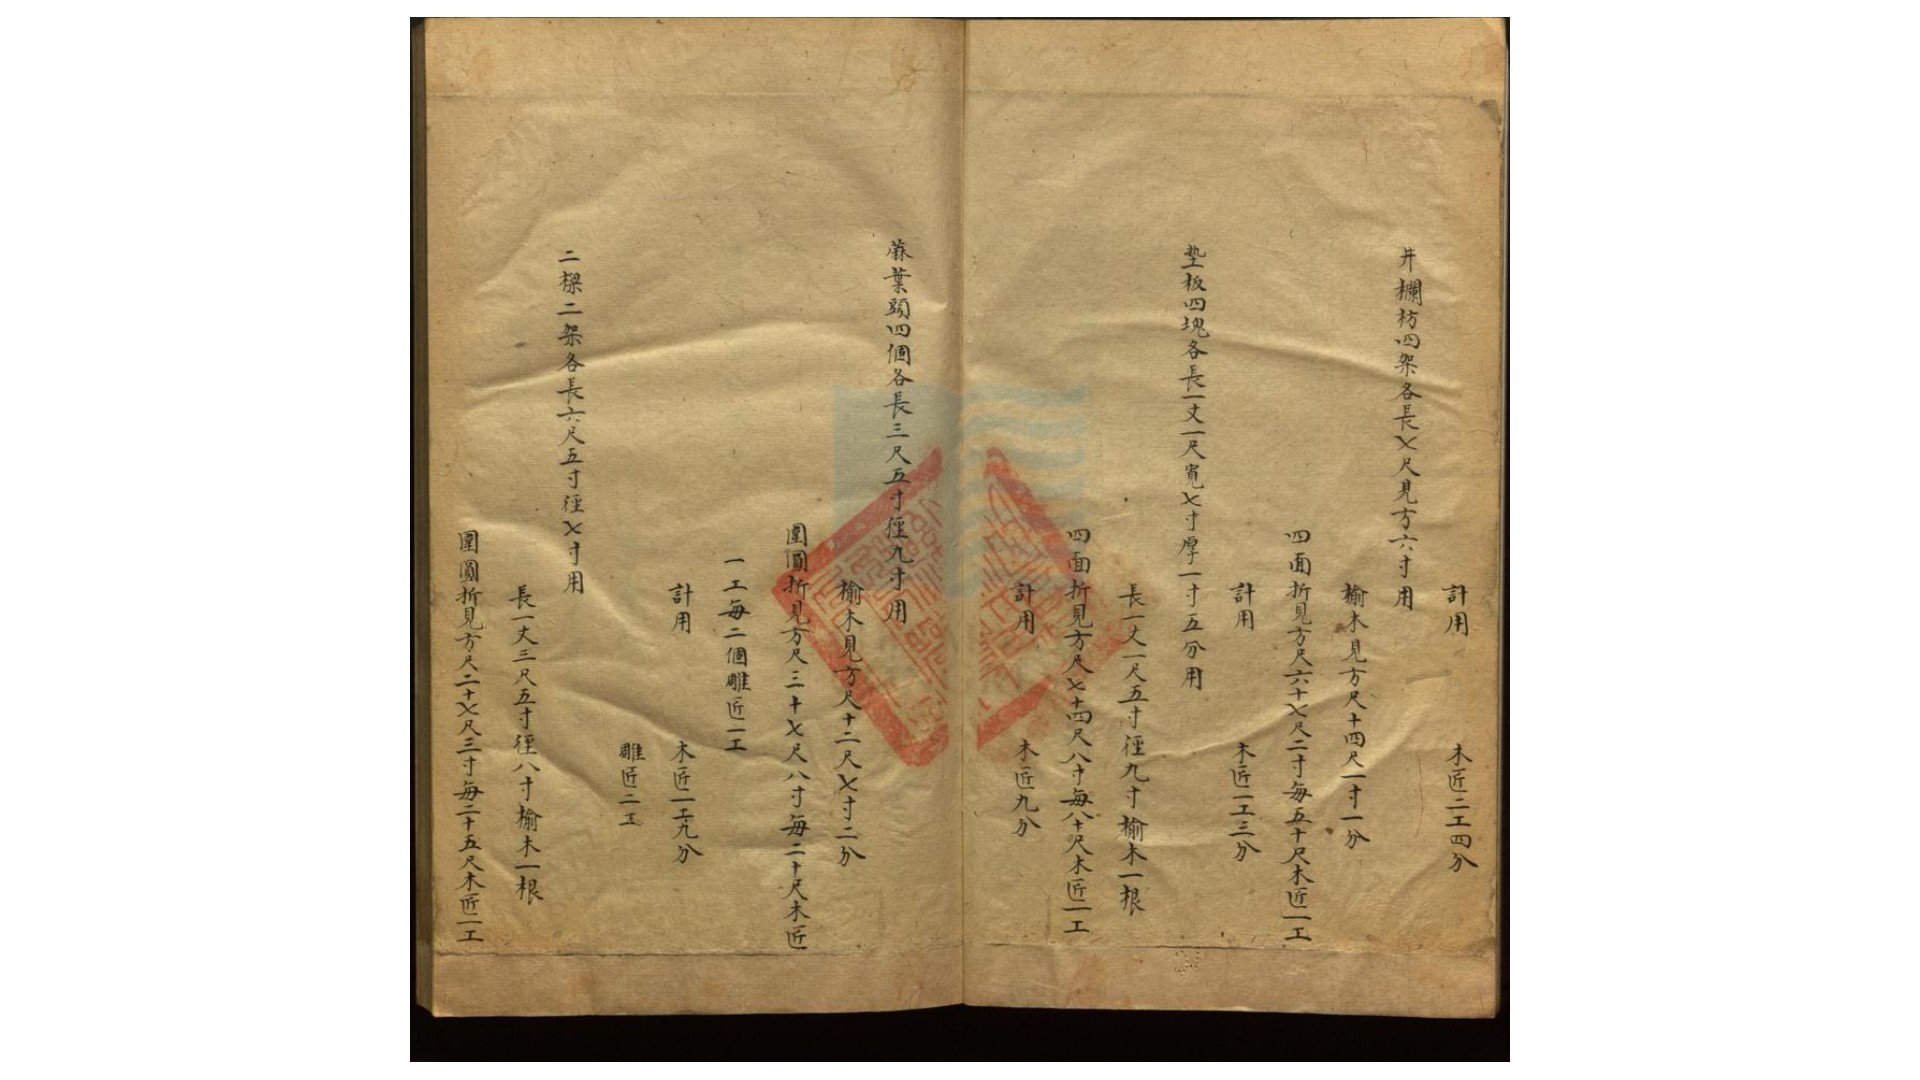 計用
木匠二工四分
井欄枋四架各長七尺見方六寸用
榆木見方尺十四尺一寸一分
四面折見方尺六十七尺二寸每五十尺木匠一工
計用
木匠一工三分
墊板四塊各長一丈一尺寬七寸厚一寸五分用
長一丈一尺五寸徑九寸榆木一根
四面折見方尺七十四尺八寸每八十尺木匠一工
計用
木匠九分
蔴葉頭四個各長三尺五寸徑九寸用
榆木見方尺十二尺七寸二分
圍圓折見方尺三十七尺八寸每二十尺木匠
一工每二個雕匠一工
計用
木匠一工九分
雕匠二工
二樑二架各長六尺五寸徑七寸用
長一丈三尺五寸徑八寸榆木一根
圍圓折見方尺二十七尺三寸每二十五尺木匠一工